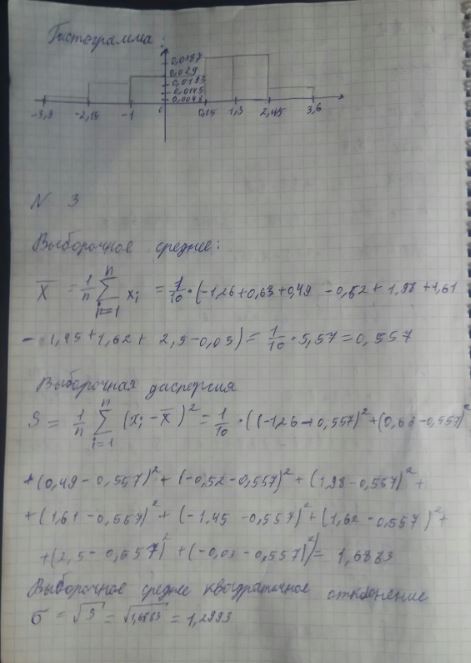 Гистограмма:
0,0187
0,029
0,0193
0,0145
0,0048
-3,3 -2,15 -1 0 0,15 1,3 2,45 3,6
N 3
Выборочное среднее:
X̅ = 1/n ∑ i=1 n xᵢ = 1/10 · (-1,26+0,63+0,49 -0,52+1,98+1,61
- 1,45+1,62+ 2,5-0,03) = 1/10 · 5,57 = 0,557
Выборочная дисперсия
S = 1/n ∑ i=1 n (xᵢ - x̅)² = 1/10 · ((-1,26-0,557)²+(0,63-0,557)²
+(0,49-0,557)² + (-0,52-0,557)² + (1,98-0,557)² +
+(1,61-0,557)² + (-1,45-0,557)² + (1,62-0,557)² +
+(2,5-0,557)² + (-0,03-0,557)²) = 1,6883
Выборочное среднее квадратичное отклонение
σ = √S = √1,6883 = 1,2993